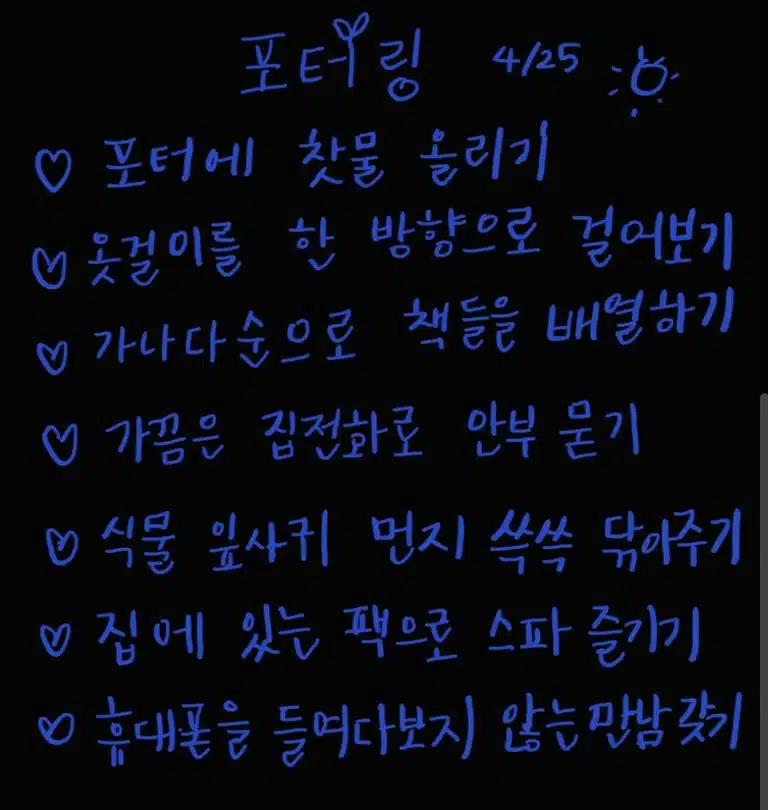 포터링 4/25
포터에 찻물 올리기
옷걸이를 한 방향으로 걸어보기
가나다순으로 책들을 배열하기
가끔은 집전화로 안부 묻기
식물 잎사귀 먼지 쓱쓱 닦아주기
집에 있는 팩으로 스파 즐기기
휴대폰을 들여다보지 않는 만남 갖기